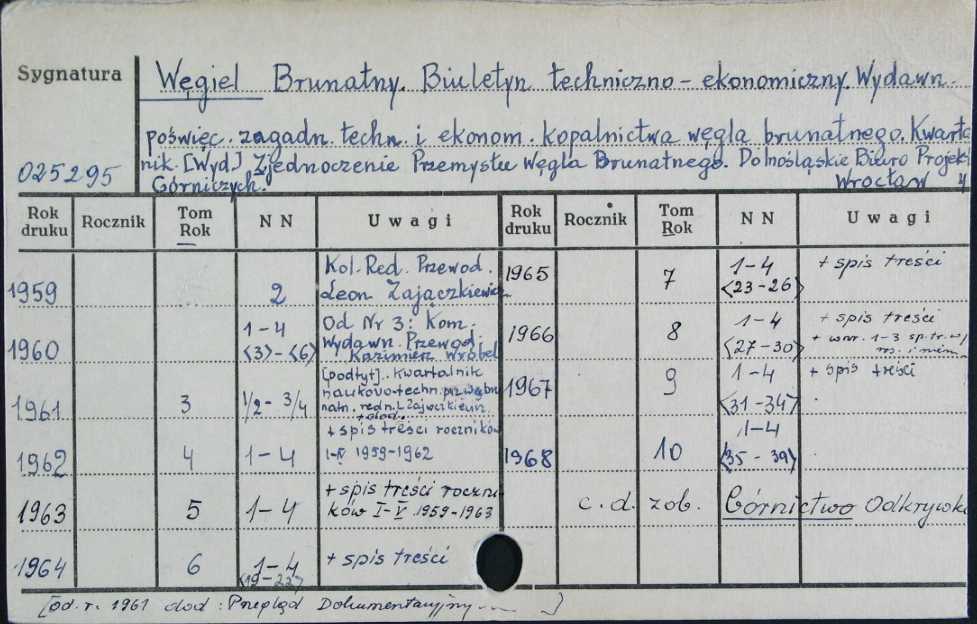 Sygnatura
Węgiel Brunatny. Biuletyn techniczno-ekonomiczny. Wydawn.
poświęc. zagadn. techn. i ekonom. kopalnictwa węgla brunatnego. Kwarta
nik. [Wyd.] Zjednoczenie Przemysłu Węgla Brunatnego. Dolnośląskie Biuro Projek
025295 Górniczych. Wrocław 4
Rok druku Rocznik Tom Rok NN Uwagi Rok druku Rocznik Tom Rok NN Uwagi
1959 2 Kol. Red. Przewod. Leon Zajączkiewicz
1960 1-4 <3>-<6> Od Nr 3: Kom. Wydawn. Przewod. Kazimierz Wróbel
1961 3 1/2-3/4 [podtyt]. Kwartalnik naukowo-techn. redn. L. Zajączkiewicz + dod.
1962 4 1-4 + spis treści roczników I-IV 1959-1962
1963 5 1-4 + spis treści roczni ków I-V 1959-1963
1964 6 1-4 <19-22> + spis treści
1965 7 1-4 <23-26> + spis treści
1966 8 1-4 <27-30> + spis treści + w nr. 1-3 sp. tr. w j. ros. i niem.
1967 9 1-4 <31-34> + spis treści
1968 10 1-4 <35-39>
c.d. zob. Górnictwo Odkrywk
[od. r. 1961 dod: Przegląd Dokumentacyjny ]